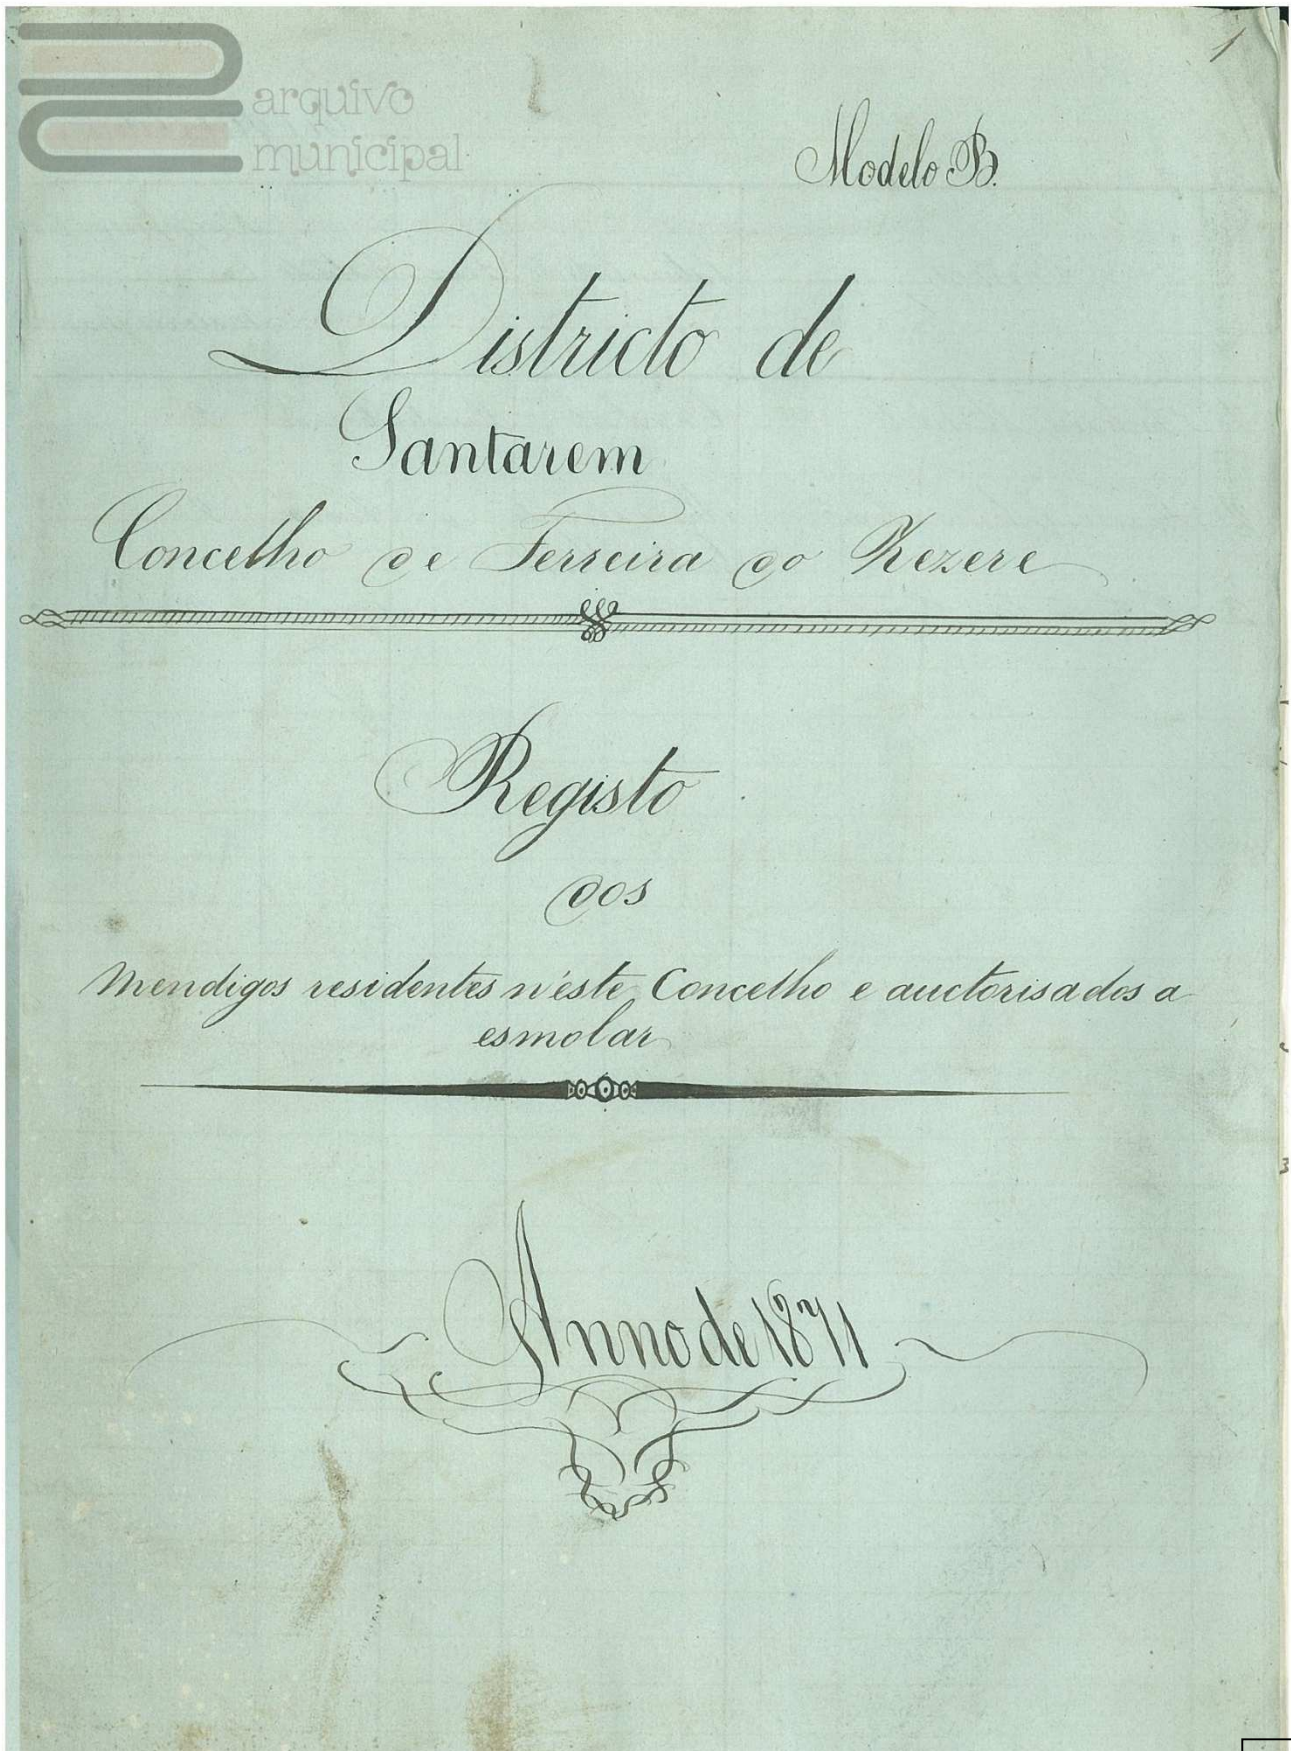 arquivo
municipal
1
Modelo B.
Districto de
Santarem
Concelho de Ferreira do Zezere
Registo
dos
Mendigos residentes n'éste Concelho e auctorisados a
esmolar
Anno de 1871